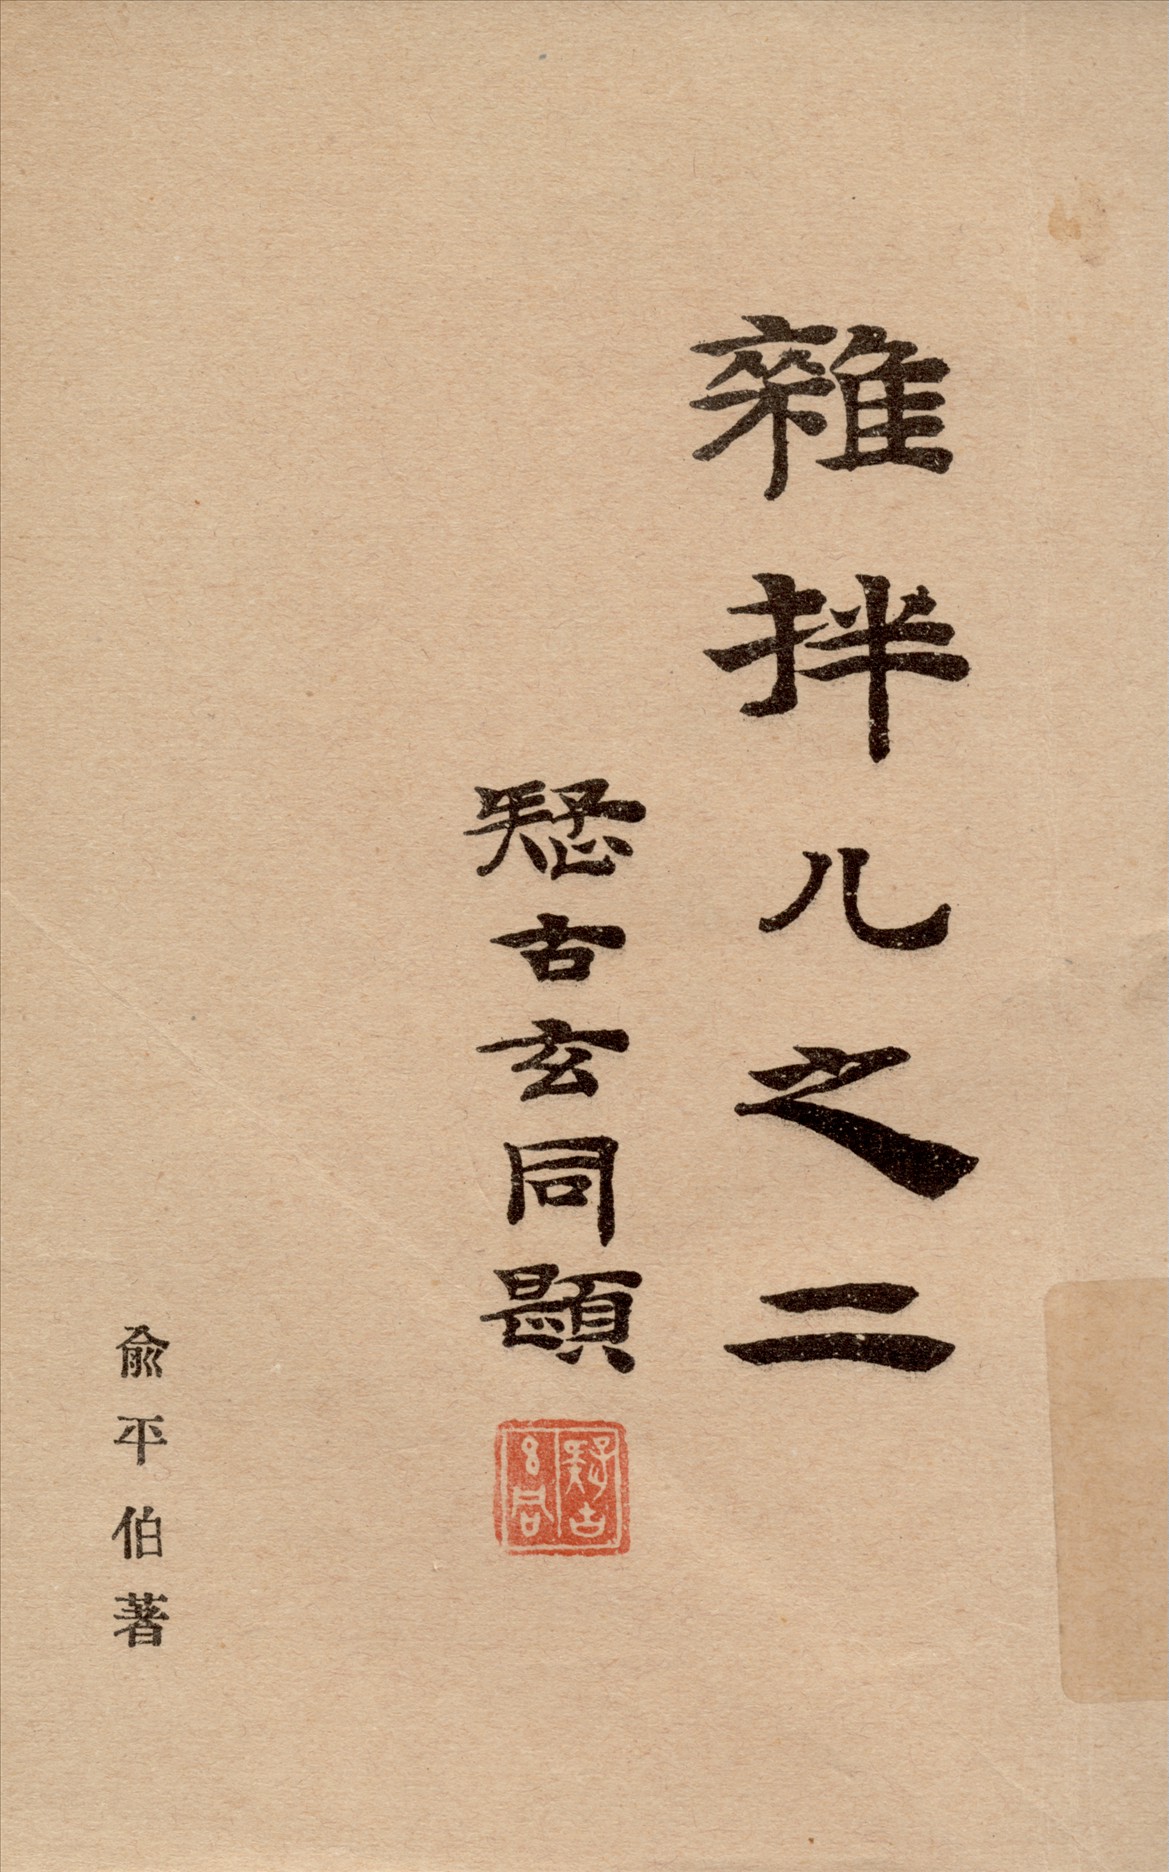 雜拌儿之二
疑古玄同題
疑古
玄同
俞平伯著